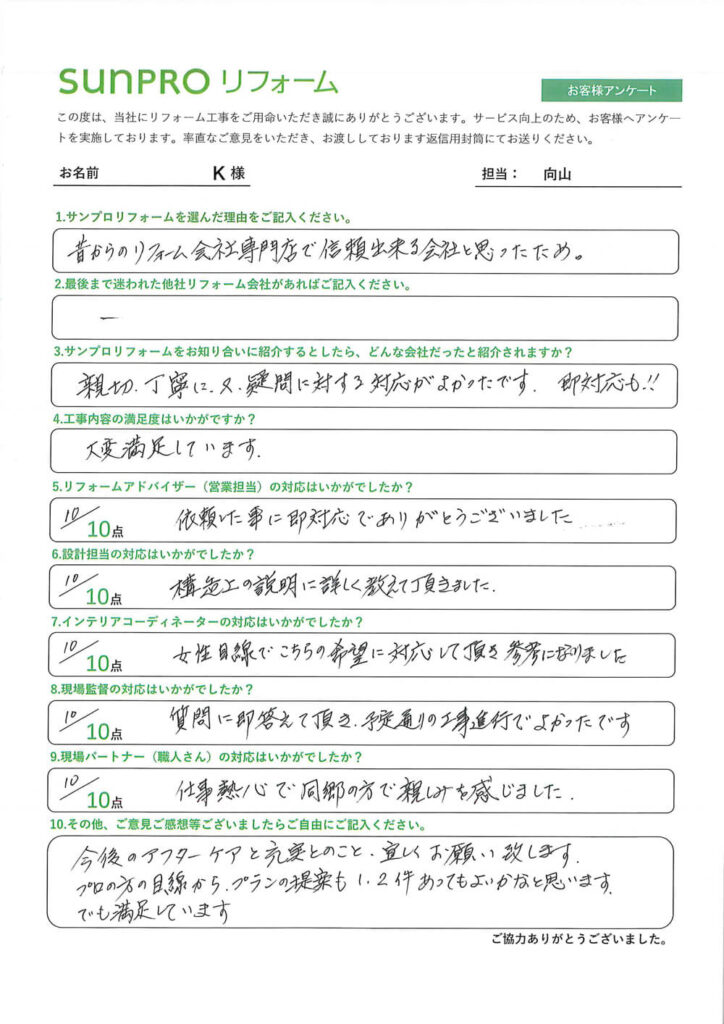 SUNPRO リフォーム
お客様アンケート
この度は、当社にリフォーム工事をご用命いただき誠にありがとうございます。サービス向上のため、お客様へアンケー
トを実施しております。率直なご意見をいただき、お渡ししております返信用封筒にてお送りください。
お名前 K 様 担当： 向山
1.サンプロリフォームを選んだ理由をご記入ください。
昔からのリフォーム会社専門店で信頼出来る会社と思ったため。
2.最後まで迷われた他社リフォーム会社があればご記入ください。
ー
3.サンプロリフォームをお知り合いに紹介するとしたら、どんな会社だったと紹介されますか？
親切、丁寧に、又、疑問に対する対応がよかったです. 即対応も!!
4.工事内容の満足度はいかがですか？
大変満足しています.
5.リフォームアドバイザー（営業担当）の対応はいかがでしたか？
10/10点 依頼した事に即対応でありがとうございました
6.設計担当の対応はいかがでしたか？
10/10点 構造上の説明に詳しく教えて頂きました.
7.インテリアコーディネーターの対応はいかがでしたか？
10/10点 女性目線でこちらの希望に対応して頂き参考になりました
8.現場監督の対応はいかがでしたか？
10/10点 質問に即答えて頂き、予定通りの工事進行でよかったです
9.現場パートナー（職人さん）の対応はいかがでしたか？
10/10点 仕事熱心で同郷の方で親しみを感じました.
10.その他、ご意見ご感想等ございましたらご自由にご記入ください。
今後のアフターケアと充実とのこと、宜しくお願い致します.
プロの方の目線から、プランの提案も1、2件あってもよいかなと思います.
でも満足しています
ご協力ありがとうございました。